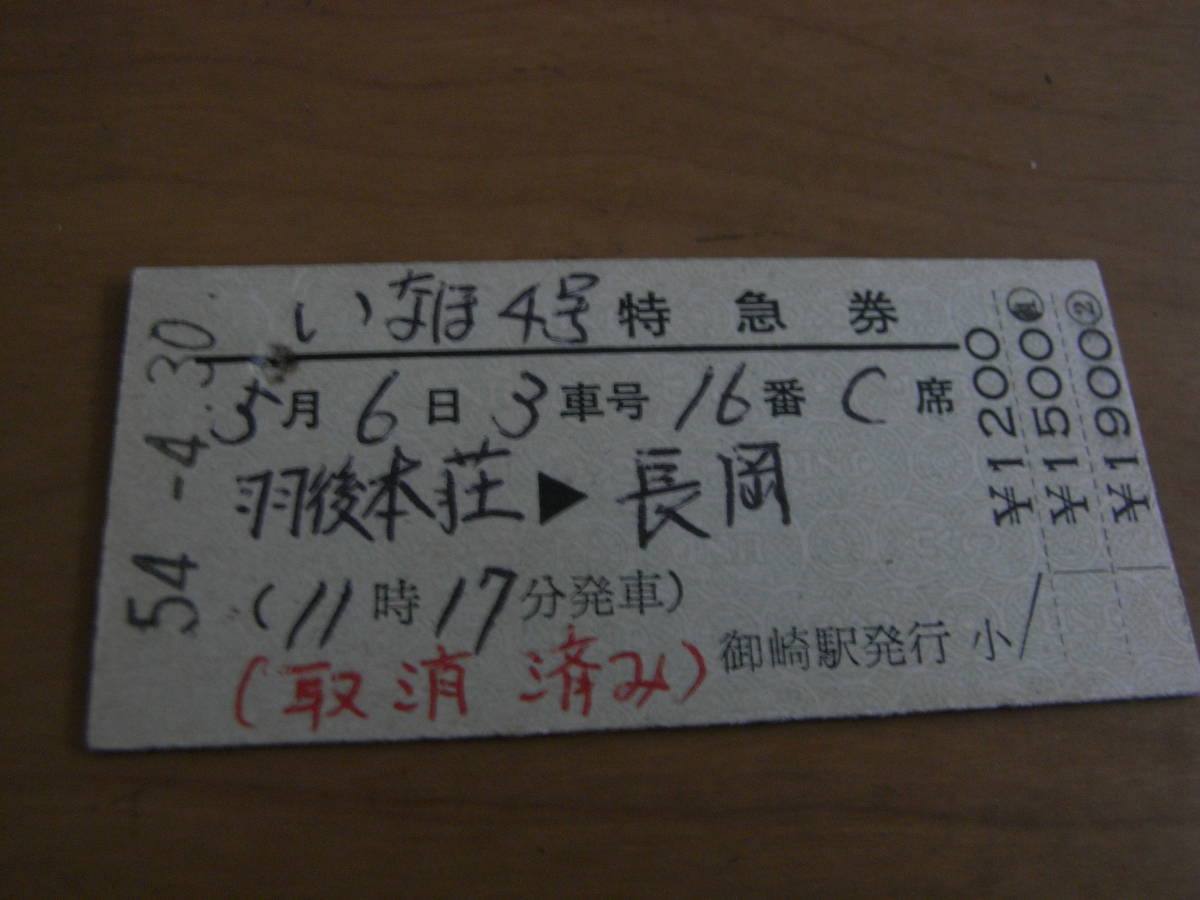 いなほ4号 特急券
5月6日3車号16番C席
羽後本荘▶長岡
(11時17分発車)
(取消済み)
御崎駅発行 小
54-4.30
¥1200
¥1500
②¥1900